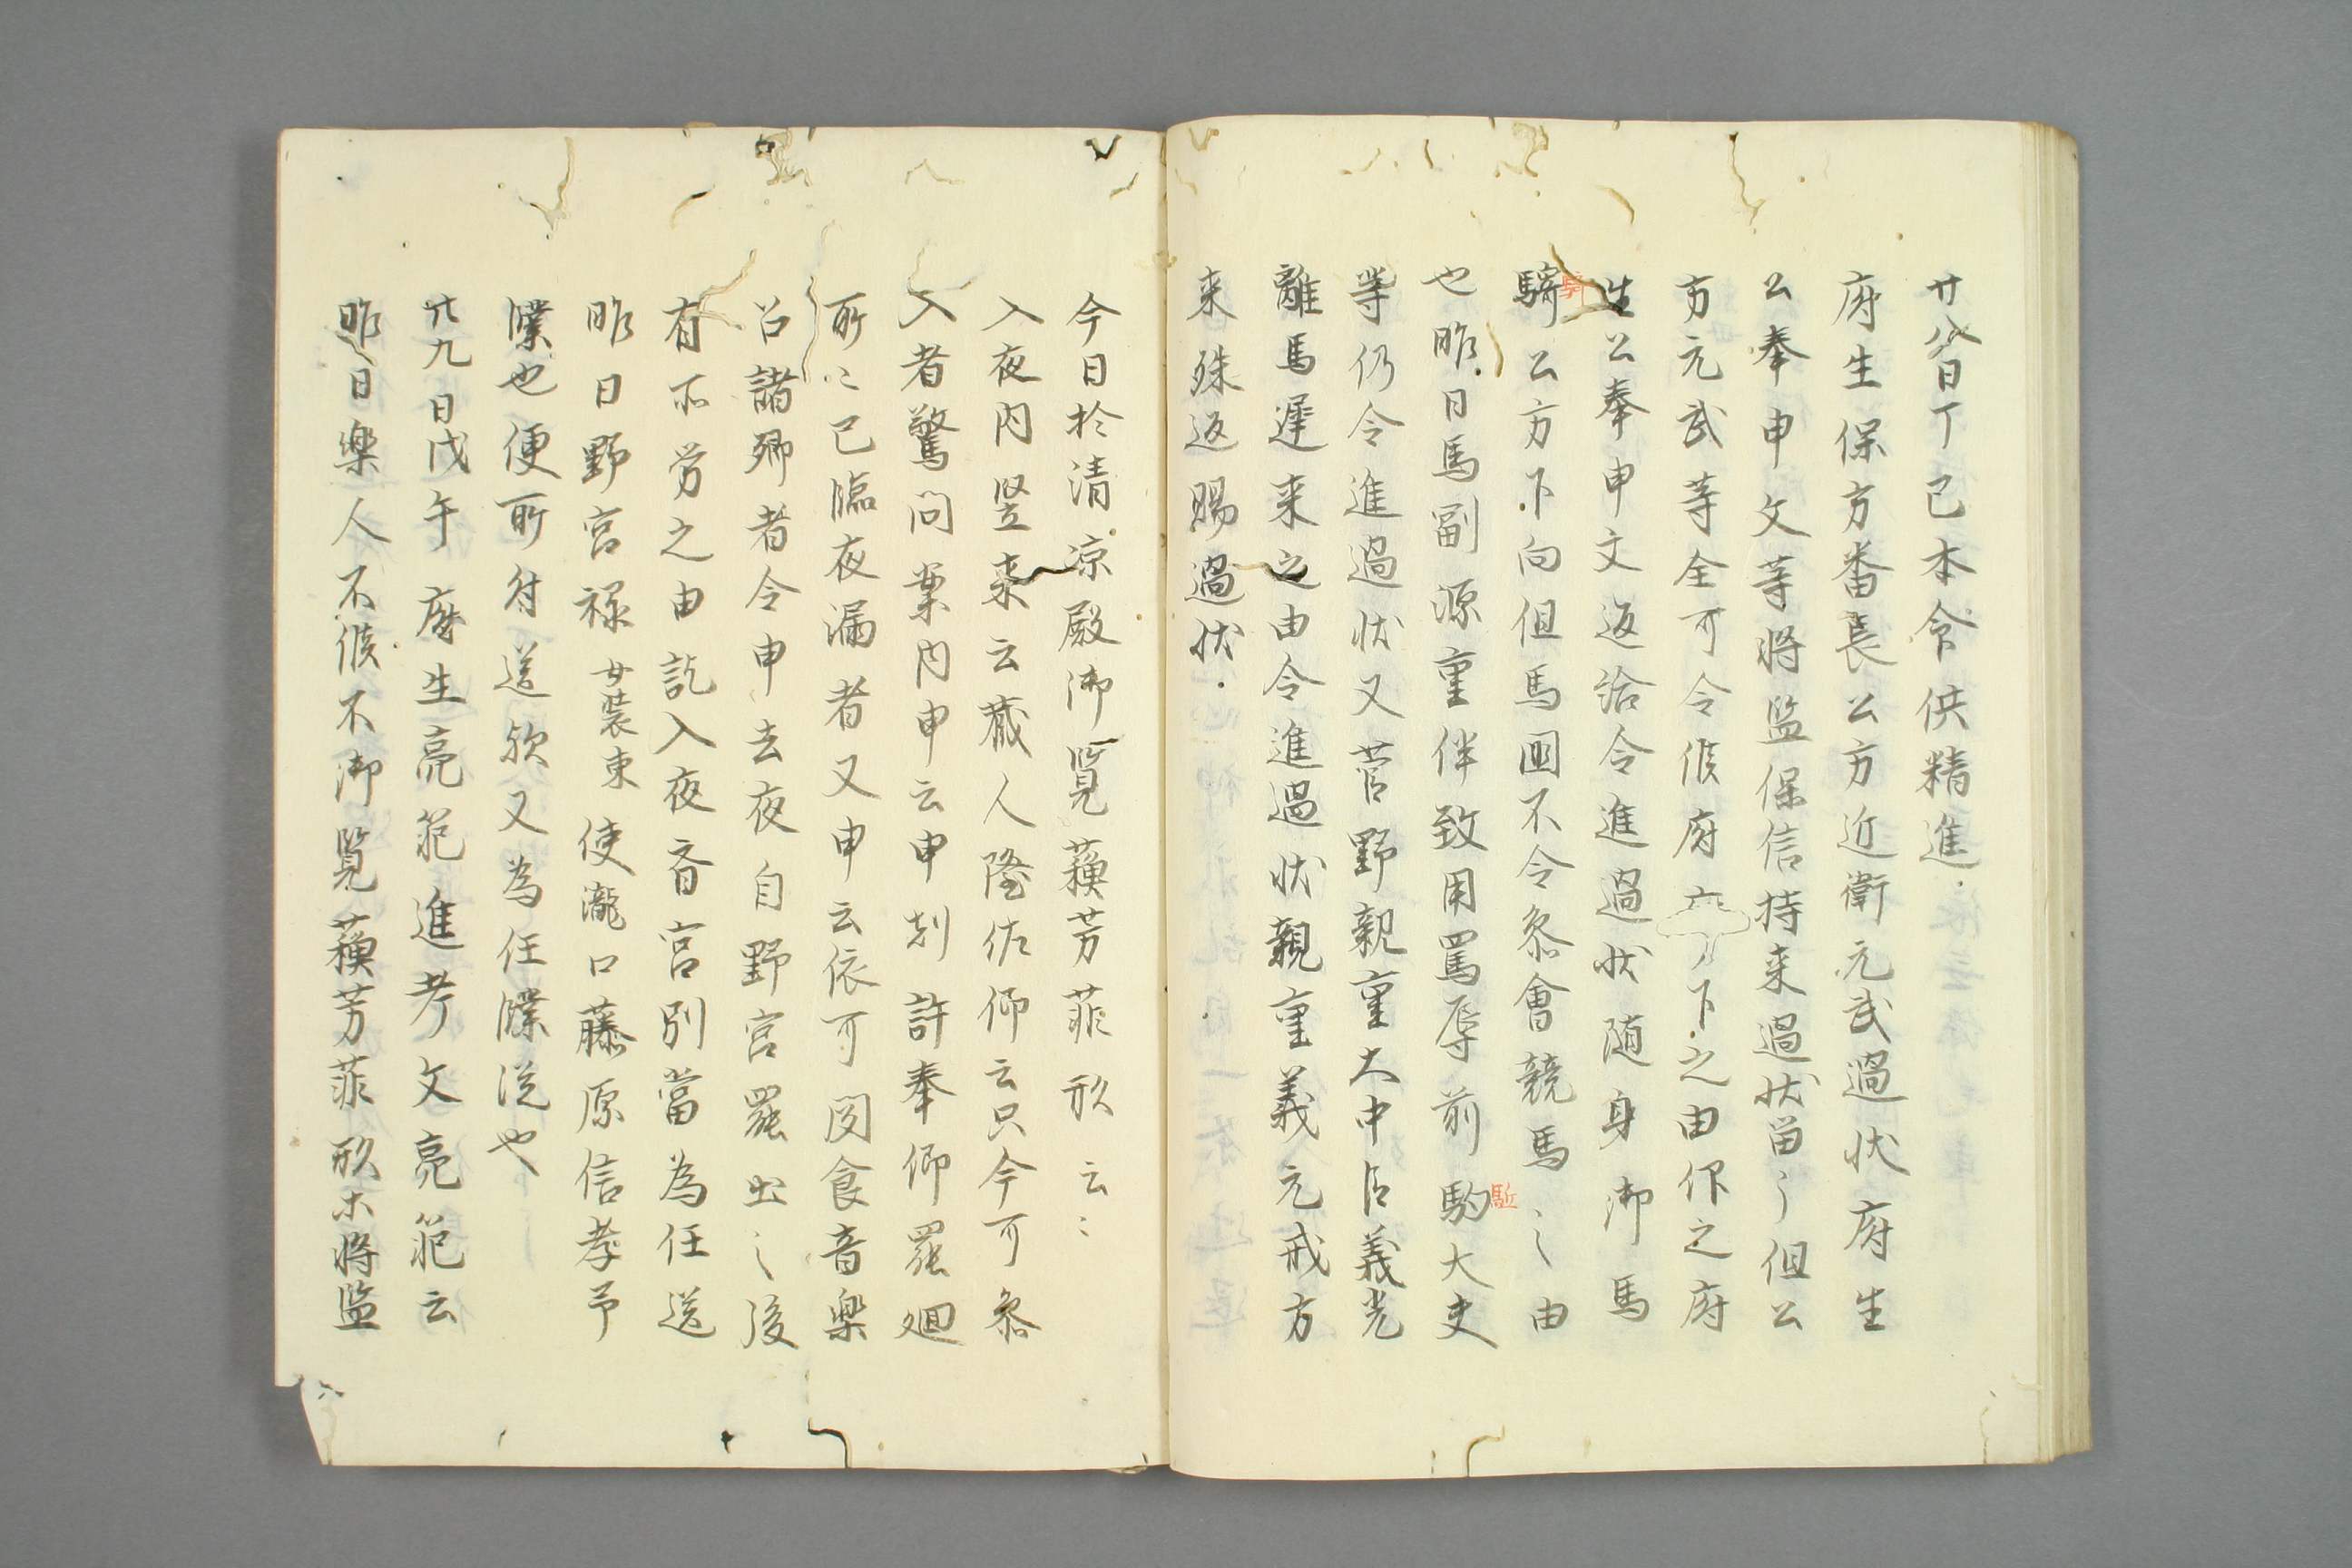 廿八日丁巳本命供精進
府生保方番長公方近衛元武過状府生
公奉申文等将監保信持来過状留之但公
方元武等全可令候府下之由仰之府
生公奉申文返給令進過状随身御馬
騎公方下向但馬国不令参會競馬之由
騎
也昨日馬副源重伴致用罵辱前駒大史
駈
等仍令進過状又菅野親重大中臣義光
離馬遅来之由令進過状親重義元戒方
来殊返賜過状
今日於清凉殿御覧蘓芳菲形云々
入夜内竪来云蔵人隆佐仰云只今可参
入者驚問案内申云申剋許奉仰罷廻
所々已臨夜漏者又申云依可聞食音楽
召諸卿者令申去夜自野宮罷出之後
有所労之由訖入夜斎宮別當為任送
昨日野宮禄女装束使瀧口藤原信孝予
牒也便所付送歟又為任牒送也
廿九日戊午府生亮範進考文亮範云
昨日楽人不候不御覧蘓芳菲形亦将監